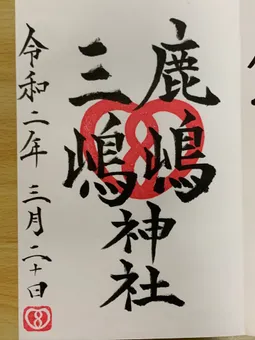 鹿嶋
三嶋
神社
令和二年 三月二十日